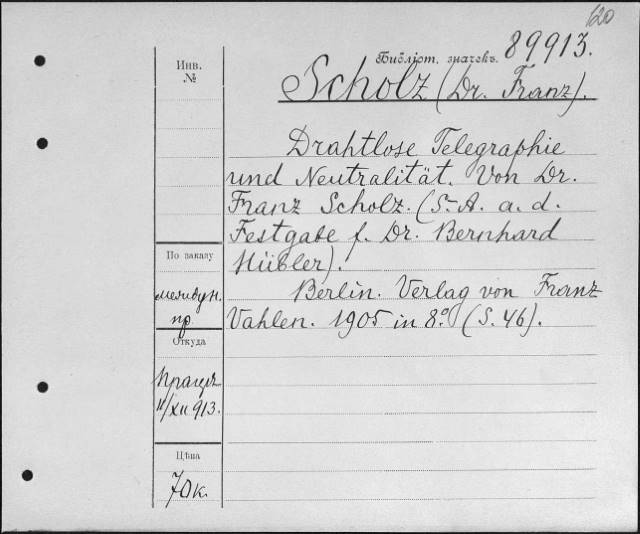 120
Библіот. значекъ. 89913.
Инв.
№
Scholz (Dr. Franz).
Drahtlose Telegraphie
und Neutralität. Von Dr.
Franz Scholz. (S.-A. a. d.
Festgabe f. Dr. Bernhard
Hübler).
Berlin. Verlag von Franz
Vahlen. 1905 in 8° (S. 46).
По заказу
междун.
пр
Откуда
11/XII 913.
Цѣна
70к.